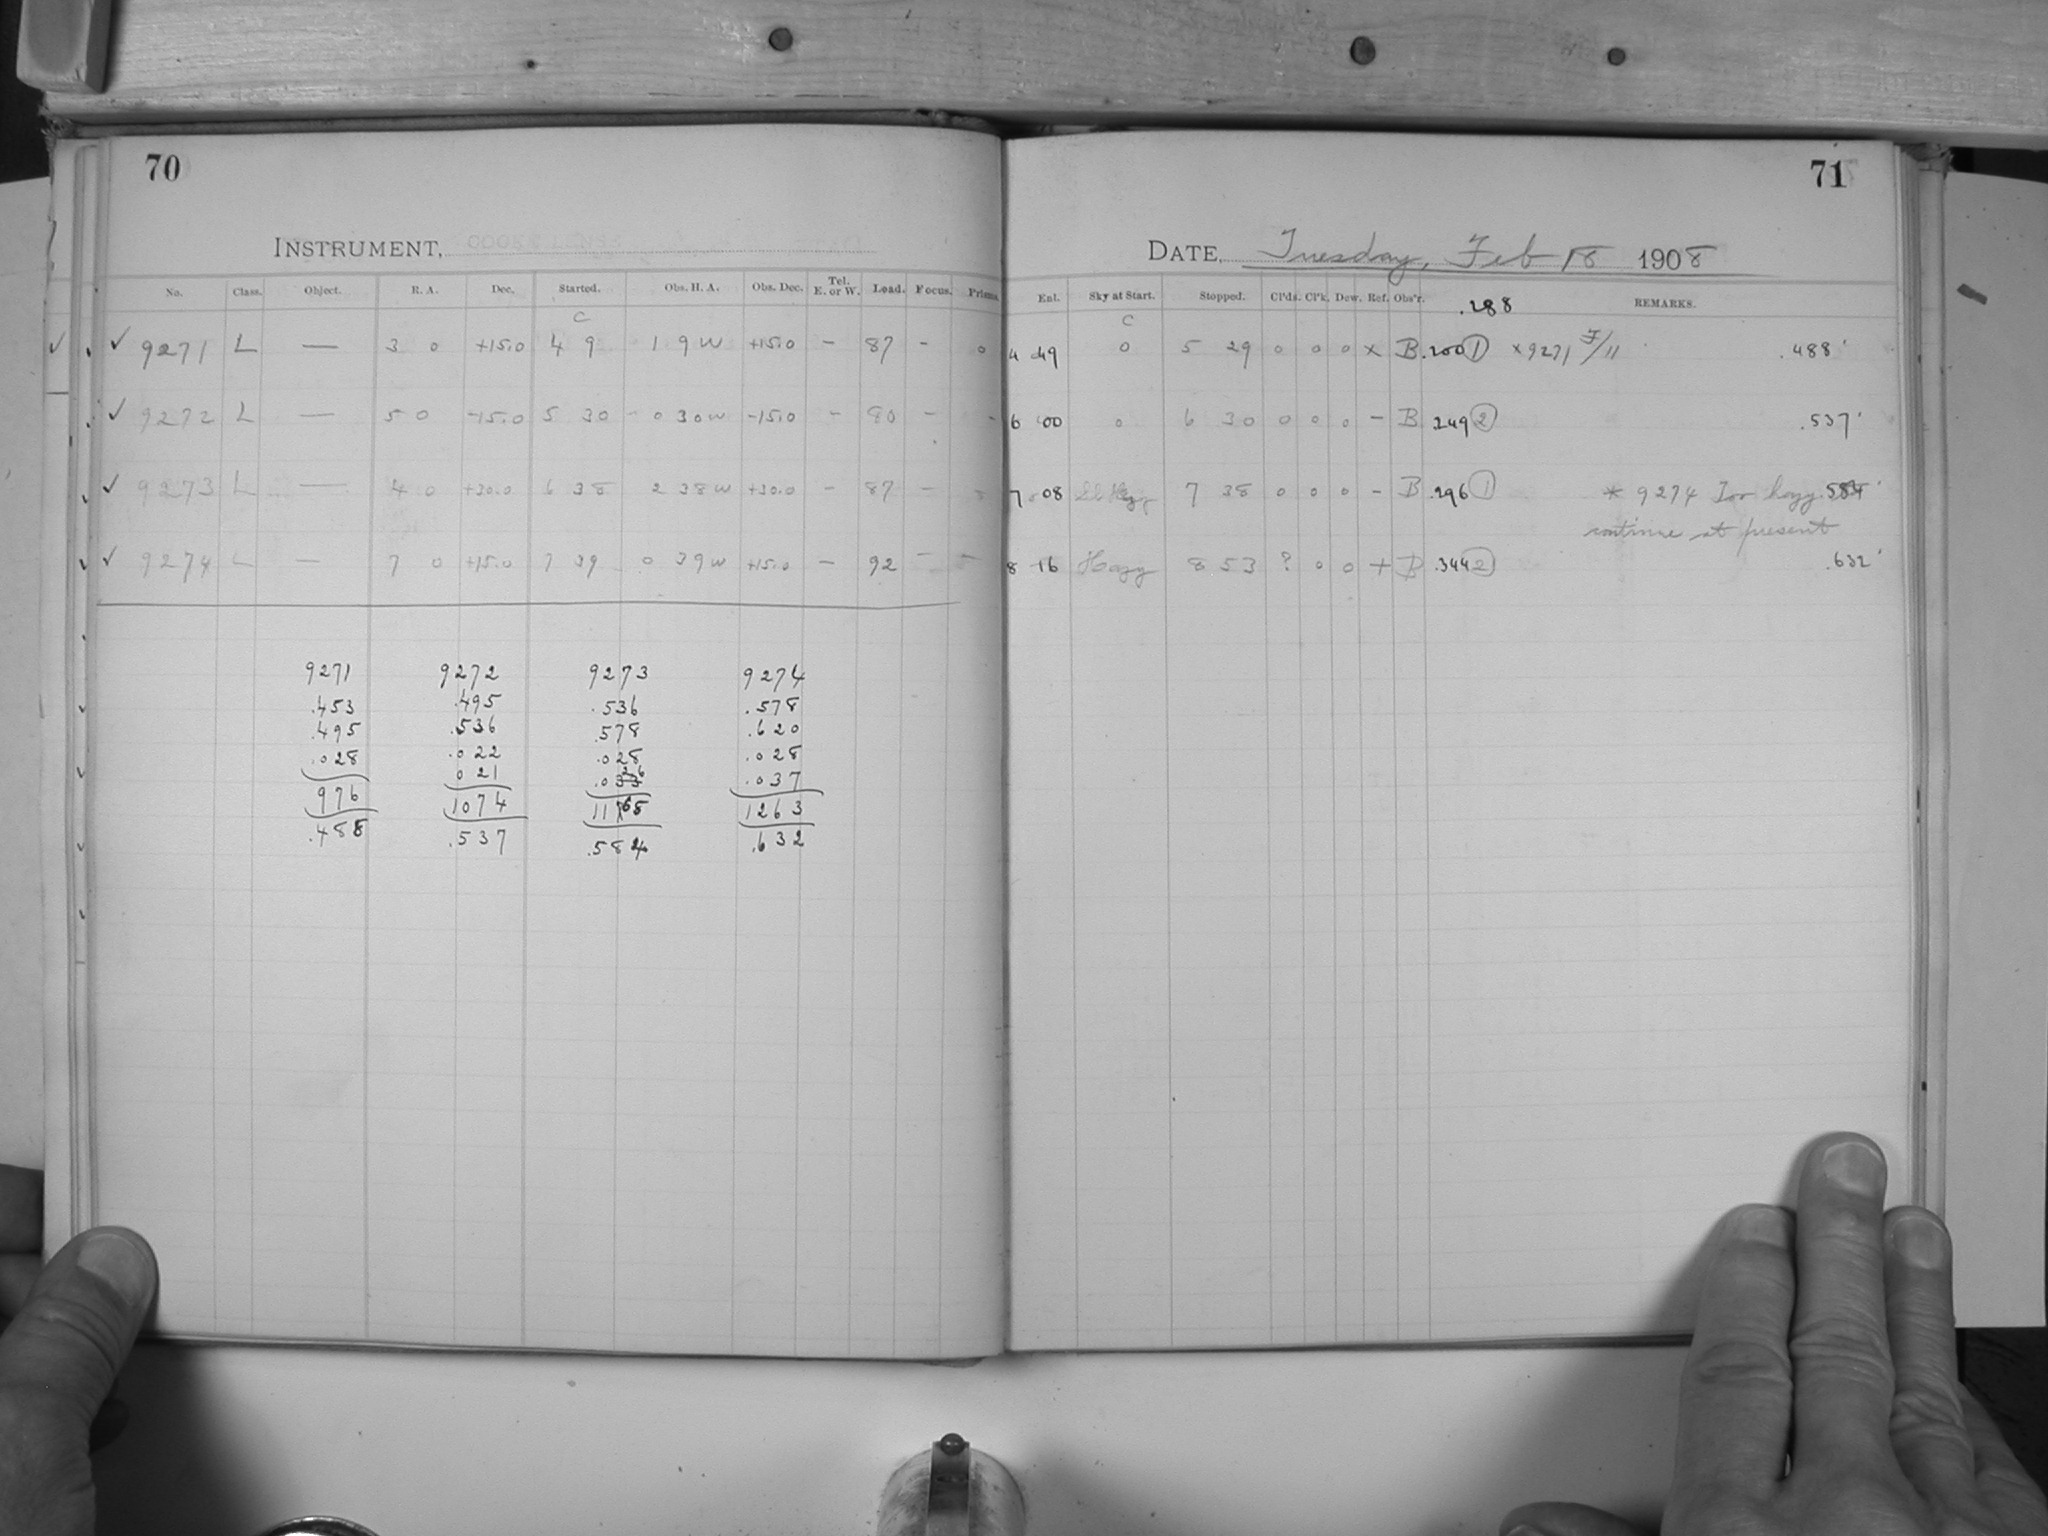 70
INSTRUMENT,
No. Class. Object. R. A. Dec. Started. Obs. H. A. Obs. Dec. Tel. E. or W. Lead. Focus. Prisms.
C
✓ 9271 L — 3 0 +15.0 4 9 1 9 W +15.0 – 87 – 0
✓ 9272 L — 5 0 -15.0 5 30 - 0 30 W -15.0 – 80 – -
✓ 9273 L — 4 0 +30.0 6 38 2 38 W +30.0 – 87 –
✓ 9274 L — 7 0 +15.0 7 39 0 39 W +15.0 – 92 –
9271 9272 9273 9274
.453 .495 .536 .578
.495 .536 .578 .620
.028 .022 .028 .028
021 .037
976 1074 1263
.488 .537 .584 .632
71
DATE, Tuesday, Feb 18 1908
Enl. Sky at Start. Stopped. Cl'ds. Cl'k. Dew. Ref. Obs'r. .288 REMARKS.
C
4 49 0 5 29 0 0 0 x B .200 1 x 9271 F/11 .488'
6 00 0 6 30 0 0 0 – B .249 2 .537'
7 08 7 38 0 0 0 – B .296 1 * 9274 Too hazy
continue at present
8 16 Hazy 8 53 ? 0 0 + B .344 2 .632'